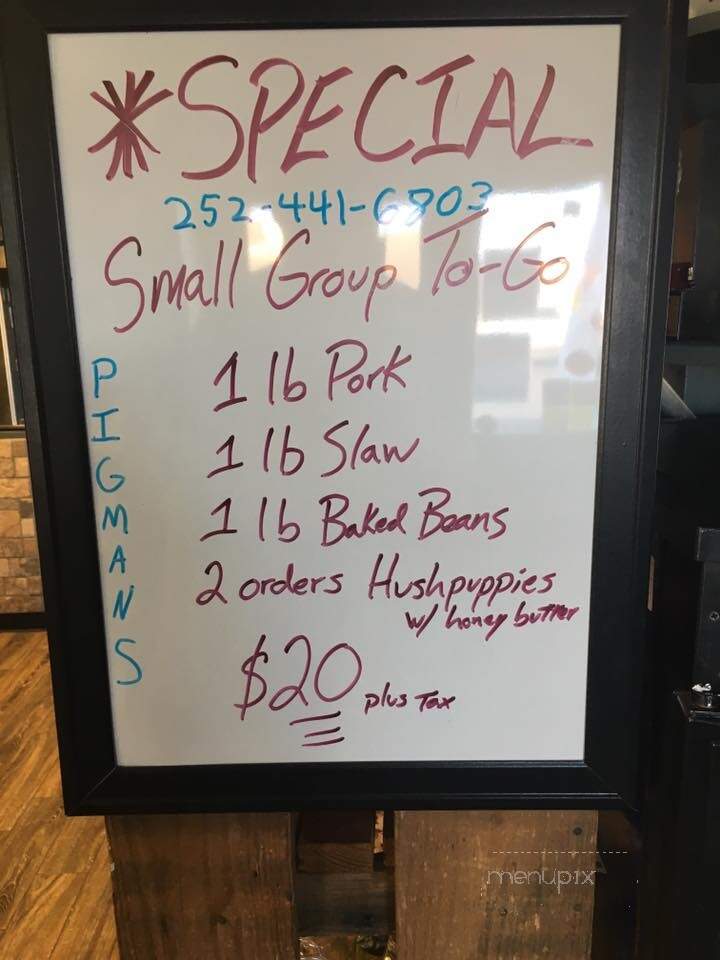 *SPECIAL
252-441-6803
Small Group To-Go
PIGMANS
1 lb Pork
1 lb Slaw
1 lb Baked Beans
2 orders Hushpuppies
w/ honey butter
$20 plus Tax
menupix